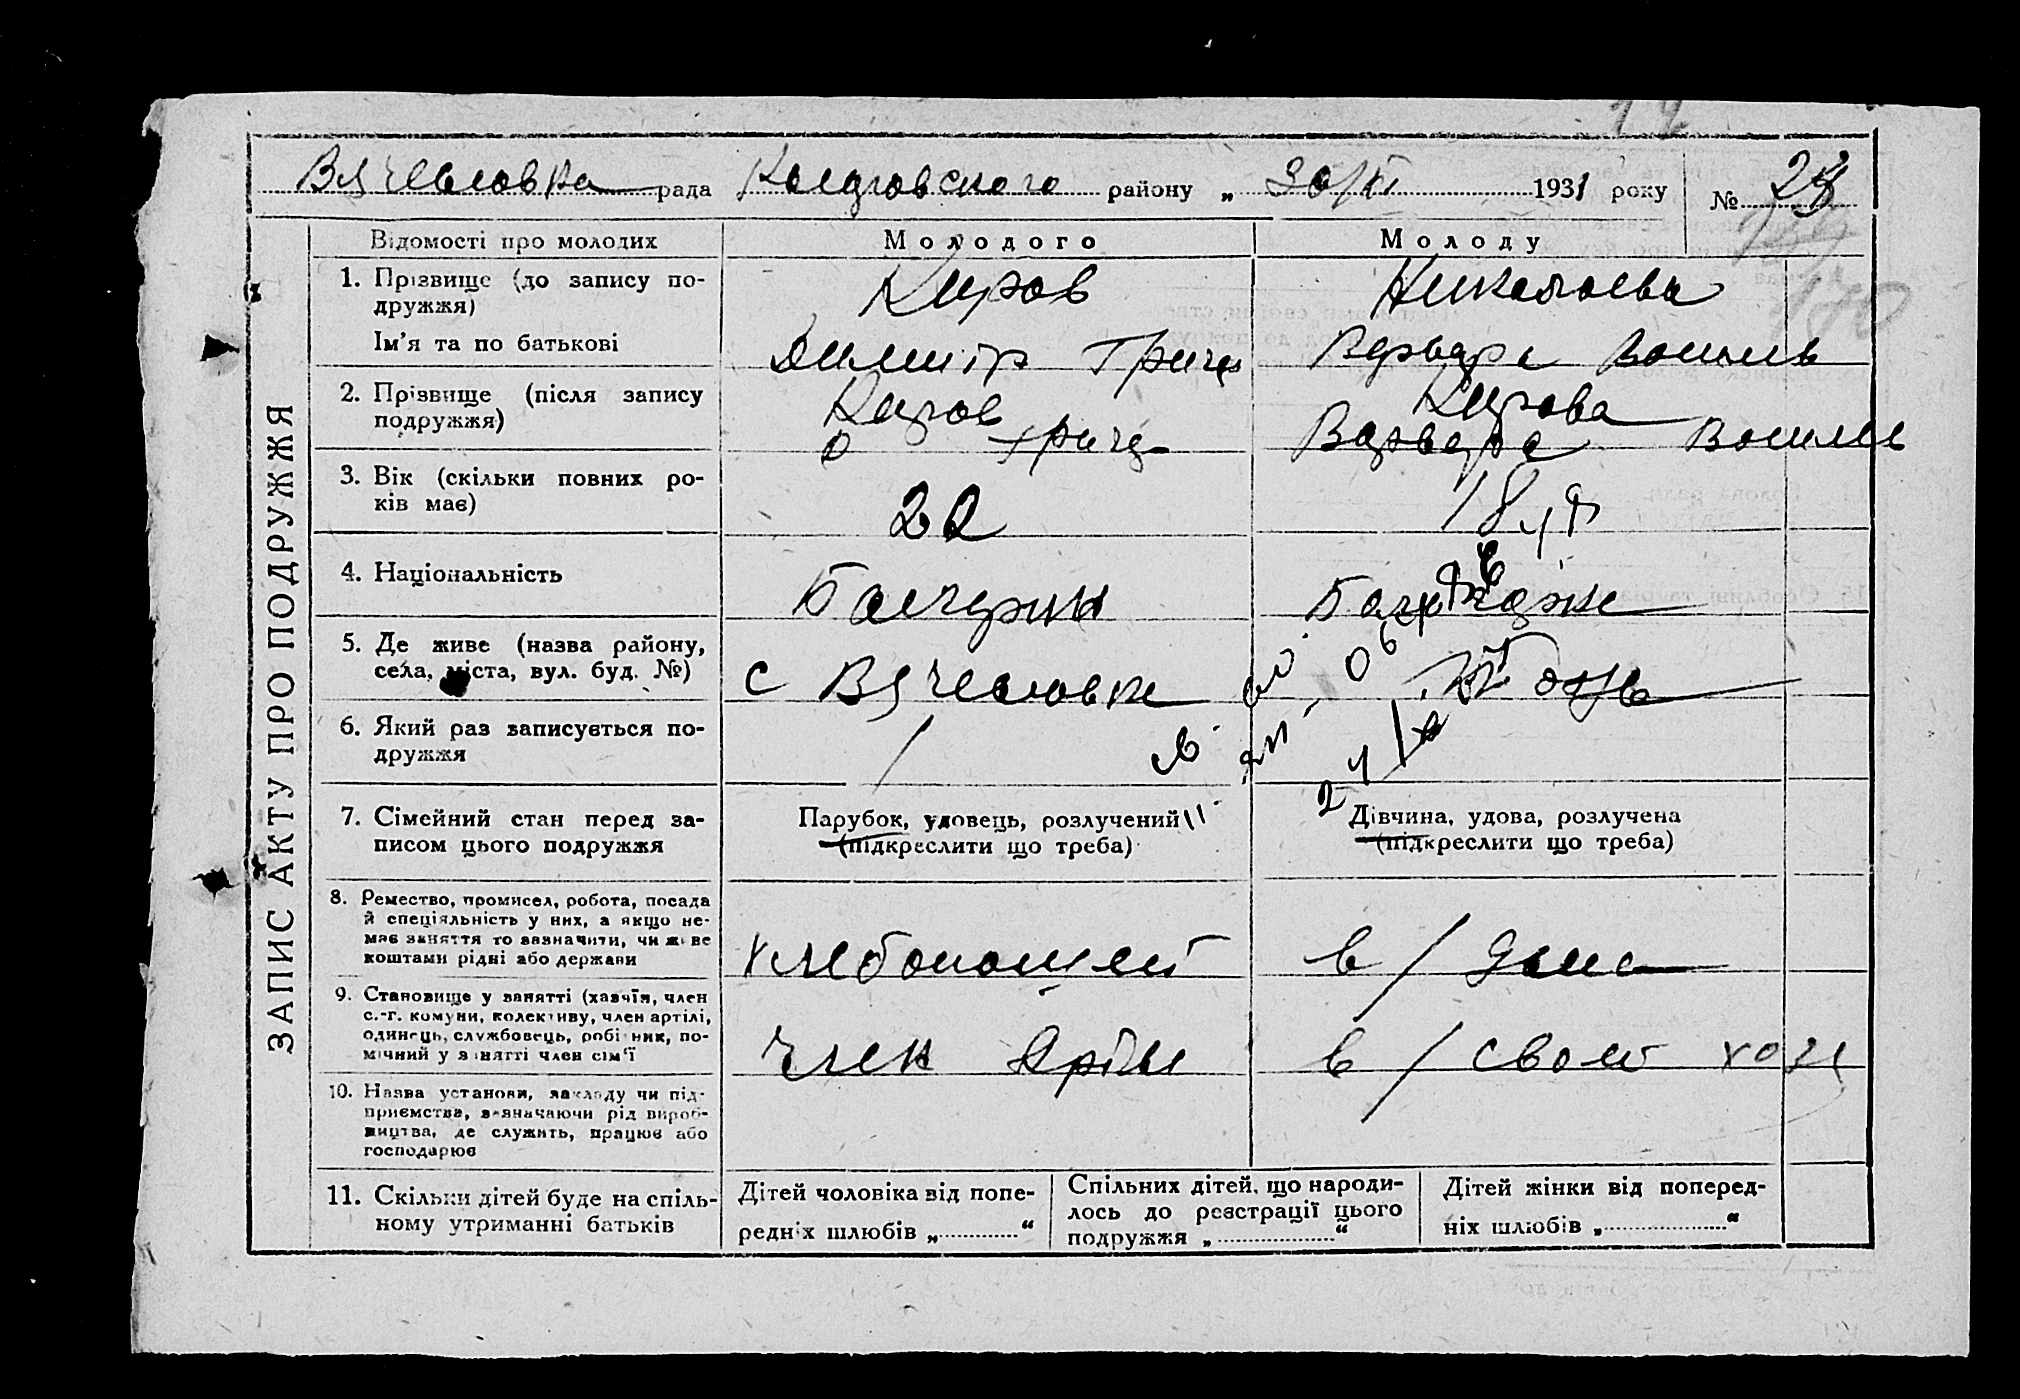 Вячеславка рада Колаговского району „ 30/XI 1931 року № 28
ЗАПИС АКТУ ПРО ПОДРУЖЖЯ
Відомості про молодих Молодого Молоду
1. Прізвище (до запису по-
дружжя) Киров Николаева
Ім'я та по батькові Димитр Григ Варвара Васильв
2. Прізвище (після запису Киров Кирова
подружжя) Григ Варвара Васильв
3. Вік (скільки повних ро-
ків має) 22 18
4. Національність Болгарин
5. Де живе (назва району,
села, міста, вул. буд. №) с Вячеславка
6. Який раз записується по-
дружжя /
7. Сімейний стан перед за- Парубок, удовець, розлучений Дівчина, удова, розлучена
писом цього подружжя (підкреслити що треба) (підкреслити що треба)
8. Ремество, промисел, робота, посада
й спеціяльність у них, а якщо не-
має заняття то зазначити, чи живе
коштами рідні або держави в / доме
9. Становище у занятті (хазяїн, член
с.-г. комуни, колективу, член артілі,
одинець, службовець, робітник, по-
мічний у занятті член сім'ї член Артіли в / своем хозя
10. Назва установи, закладу чи під-
приємства, зазначаючи рід вироб-
ництва, де служить, працює або
господарює
11. Скільки дітей буде на спіль- Дітей чоловіка від попе- Спільних дітей, що народи- Дітей жінки від поперед-
ному утриманні батьків редніх шлюбів „ “ лось до реєстрації цього ніх шлюбів „ “
подружжя „ “